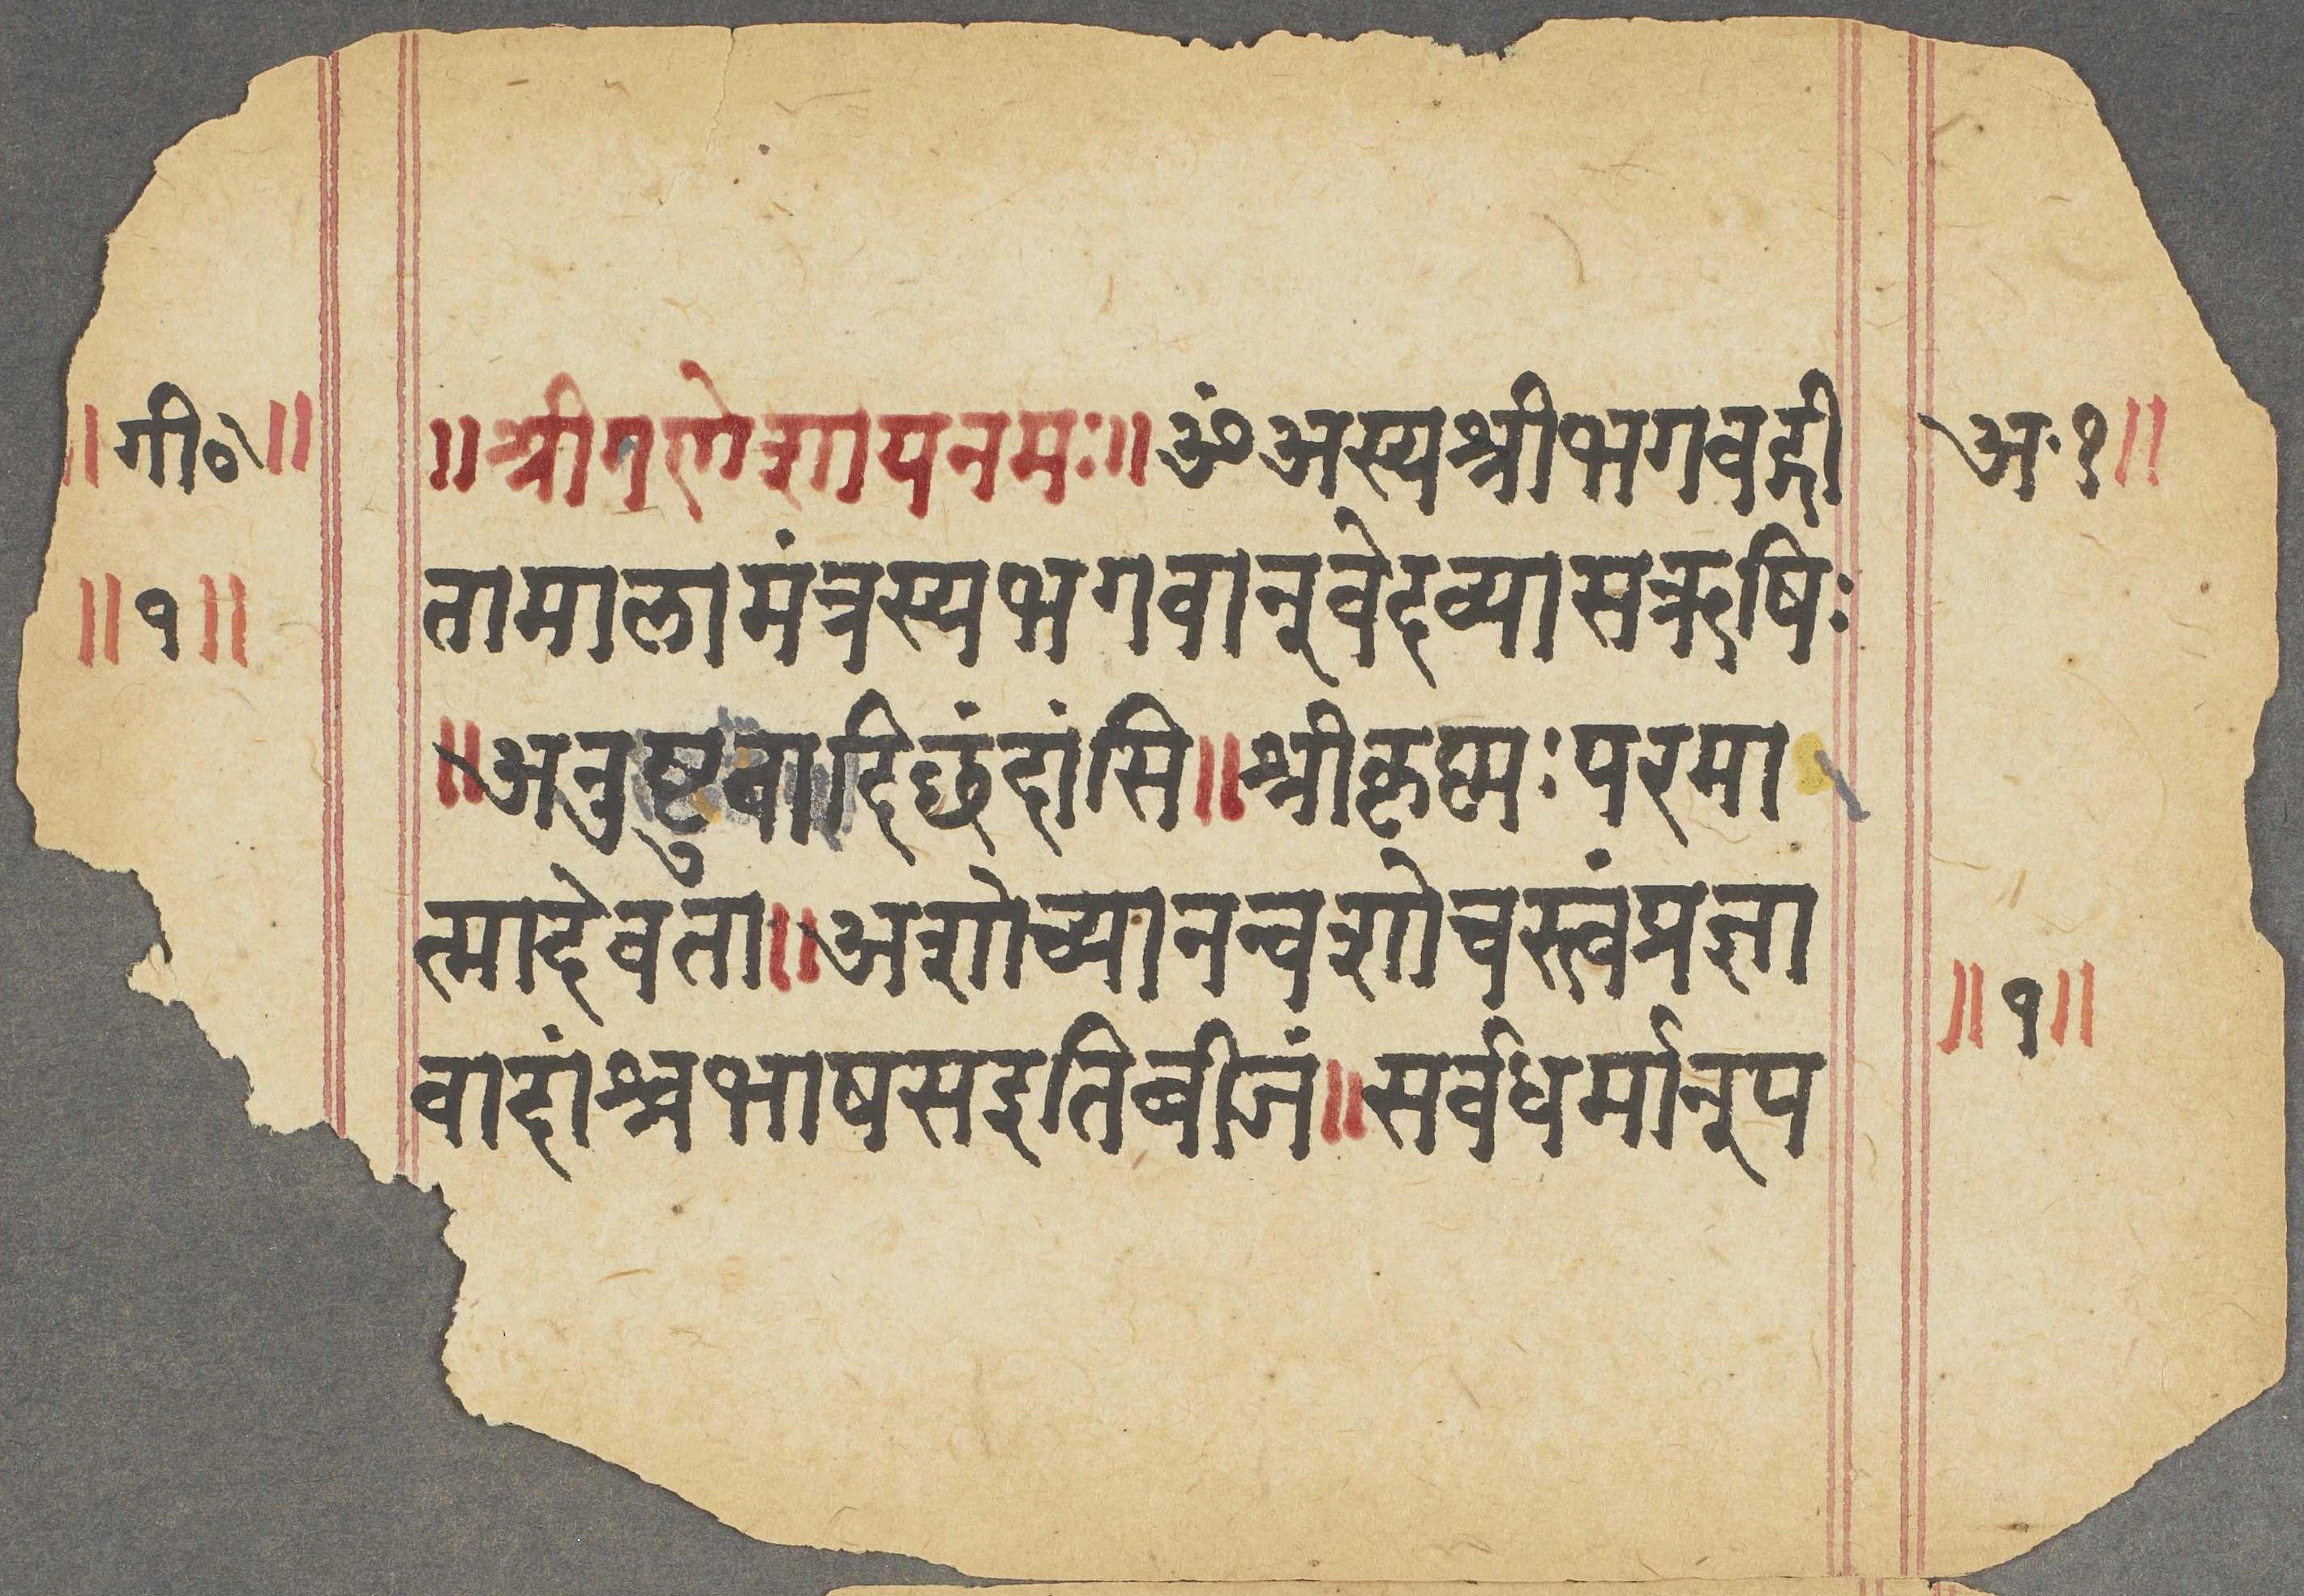 ॥गी०॥
॥१॥
॥श्रीगणेशायनमः॥ॐअस्यश्रीभगवद्गी
तामालामंत्रस्यभगवान्वेदव्यासऋषिः
॥अनुष्टुबादिछंदांसि॥श्रीकृष्णःपरमा
त्मादेवता॥अशोच्यानन्वशोचस्त्वंप्रज्ञा
वादांश्चभाषसइतिबीजं॥सर्वधर्मान्प
अ·१॥
॥१॥